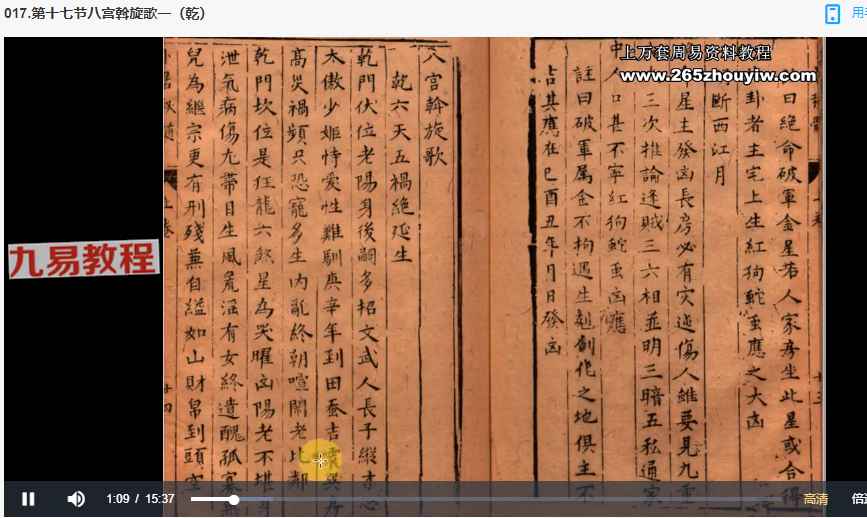 017.第十七节八宫斡旋歌一（乾）
上万套周易资料教程
www.265zhouyiw.com
曰絶命破軍金星若人家房坐此星或合得
卦者主宅上生紅狗蛇䖝應之大凶
断西江月
星主發凶長房必有灾迍傷人維要見九重
三次推論逢賊三六相並明三暗五私通家
中人口甚不寧紅狗蛇䖝凶應
註曰破軍属金不拘遇生剋創作之地俱主不
占其應在巳酉丑年月日發凶
八宫斡旋歌
乾六天五禍絶延生
乾門伏位老陽身後嗣多招文武人長子縱
太傲少姬恃愛性難馴庚辛年到田蚕吉
高災禍頻只恐寵多生内亂終朝喧鬧老比鄰
乾門坎位是狂龍六煞星為災曜凶陽老不堪
泄氣病傷尤帶目生風荒滛有女終遺醜孤寡
兒為継宗更有刑殘兼自縊如山財帛到頭空
九易教程
1:09 / 15:37
高清